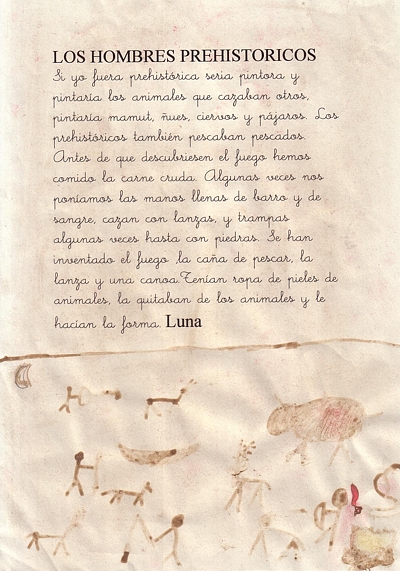 LOS HOMBRES PREHISTORICOS
Si yo fuera prehistórica seria pintora y
pintaría los animales que cazaban otros,
pintaría mamut, ñues, ciervos y pájaros. Los
prehistóricos también pescaban pescados.
Antes de que descubriesen el fuego hemos
comido la carne cruda. Algunas veces nos
poníamos las manos llenas de barro y de
sangre, cazan con lanzas, y trampas
algunas veces hasta con piedras. Se han
inventado el fuego ,la caña de pescar, la
lanza y una canoa.Tenían ropa de pieles de
animales, la quitaban de los animales y le
hacían la forma. Luna